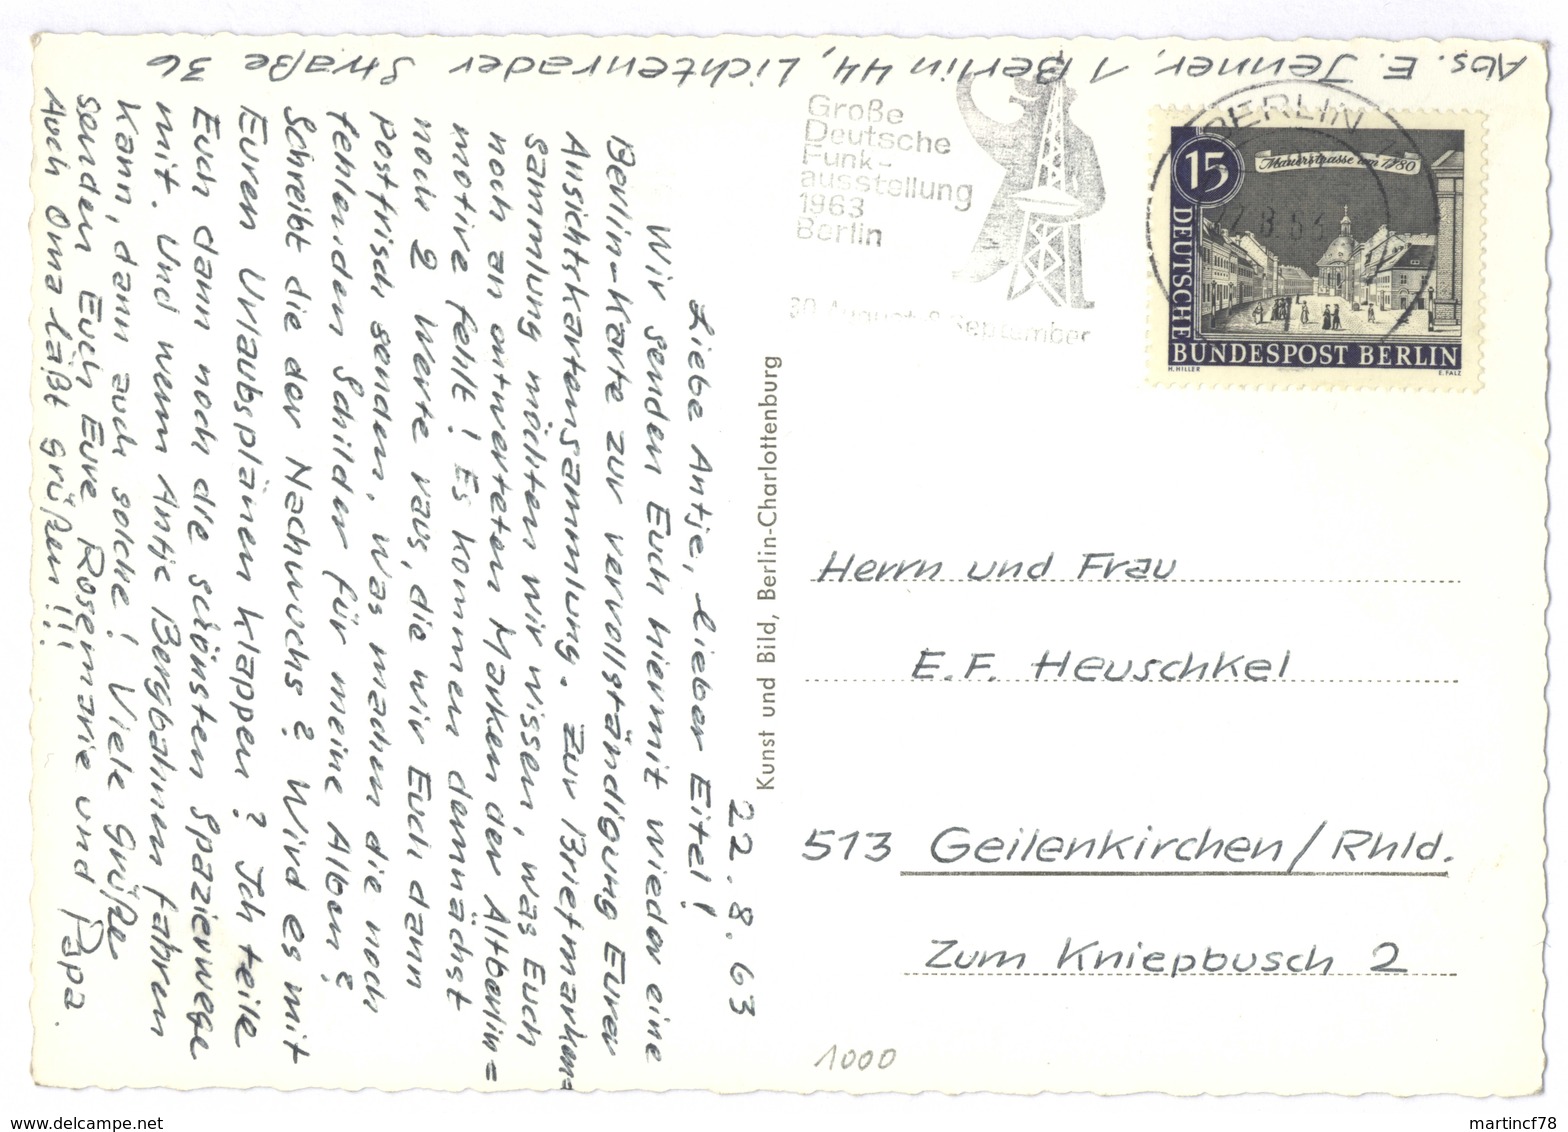 Abs. E. Jenner, 1 Berlin 44, Lichtenrader Straße 36
22.8.63
Liebe Antje, lieber Eitel!
Wir senden Euch hiermit wieder eine
Berlin-Karte zur vervollständigung Eurer
Ansichtskartensammlung. Zur Briefmarken=
sammlung möchten wir wissen, was Euch
noch an entwerteten Marken der Altberlin=
motive fehlt! Es kommen demnächst
noch 2 Werte raus, die wir Euch dann
postfrisch senden. Was machen die noch
fehlenden Schilder für meine Alben?
Schreibt die der Nachwuchs? Wird es mit
Euren Urlaubsplänen klappen? Ich teile
Euch dann noch die schönsten Spazierwege
mit. Und wenn Antje Bergbahnen fahren
kann, dann auch solche! Viele Grüße
senden Euch Eure Rosemarie und Papa.
Auch Oma läßt grüßen!!!
Kunst und Bild, Berlin-Charlottenburg
Große
Deutsche
Funk-
ausstellung
1963
Berlin
30. August-8. September
BERLIN
22.8.63
15
Mauerstrasse um 1780
DEUTSCHE
BUNDESPOST BERLIN
H. HILLER
E. FALZ
Herrn und Frau
E.F. Heuschkel
513 Geilenkirchen/Rhld.
Zum Kniepbusch 2
1000
www.delcampe.net
martincf78